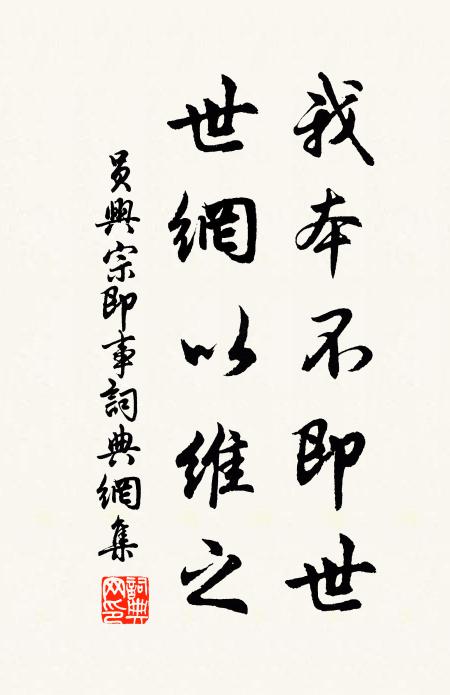 我本不即世
世網以維之
員興宗即事詞典網集
詞典網印